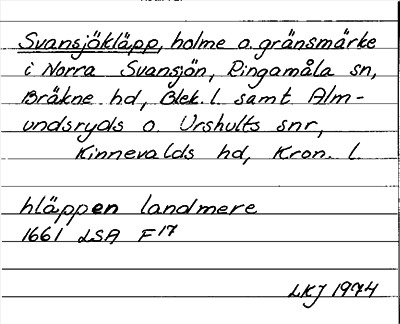 Svansjökläpp, holme o. gränsmärke
i Norra Svansjön, Ringamåla sn,
Bräkne hd, Blek. l. samt Alm-
undsryds o. Urshults snr,
Kinnevalds hd, Kron. l.
hläppen landmere
1661 LSA F17
LKJ 1974